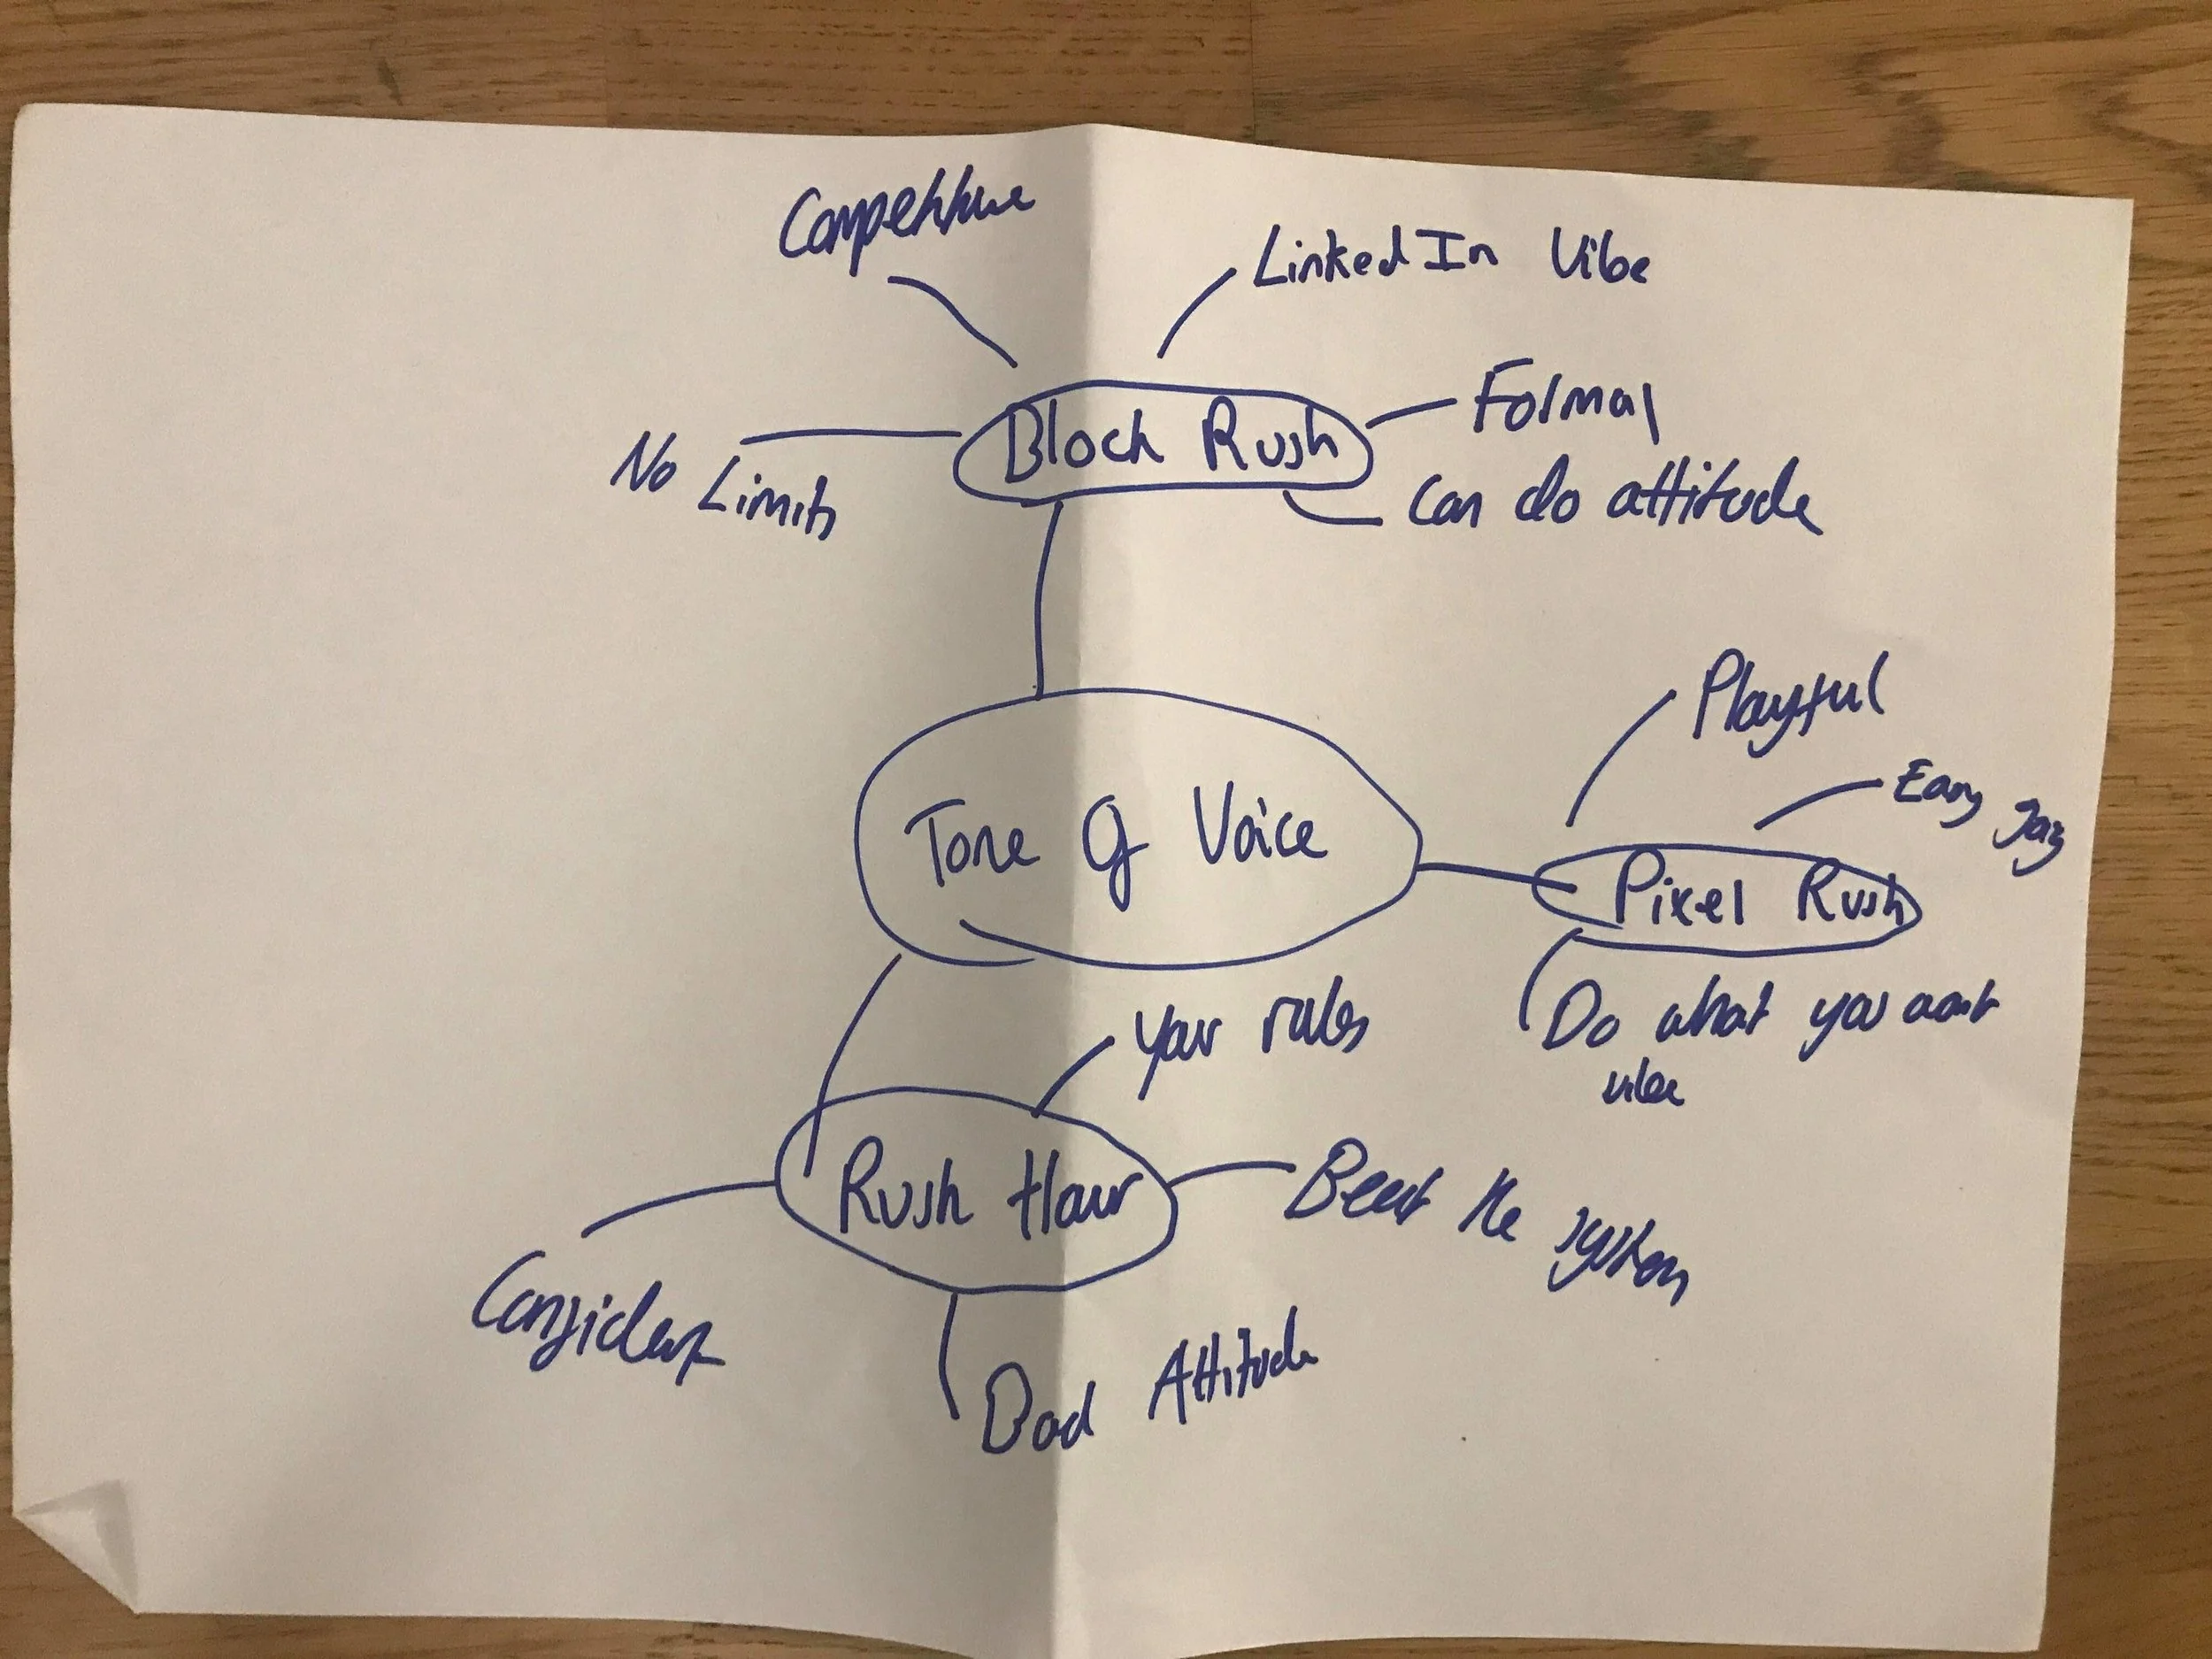 Competitive
LinkedIn Vibe
Formal
Block Rush
No Limits
Can do attitude
Playful
Easy
Tone of Voice
Pixel Rush
Do what you want
vibe
Your rules
Rush Hour
Beat the system
Confident
Bad Attitude